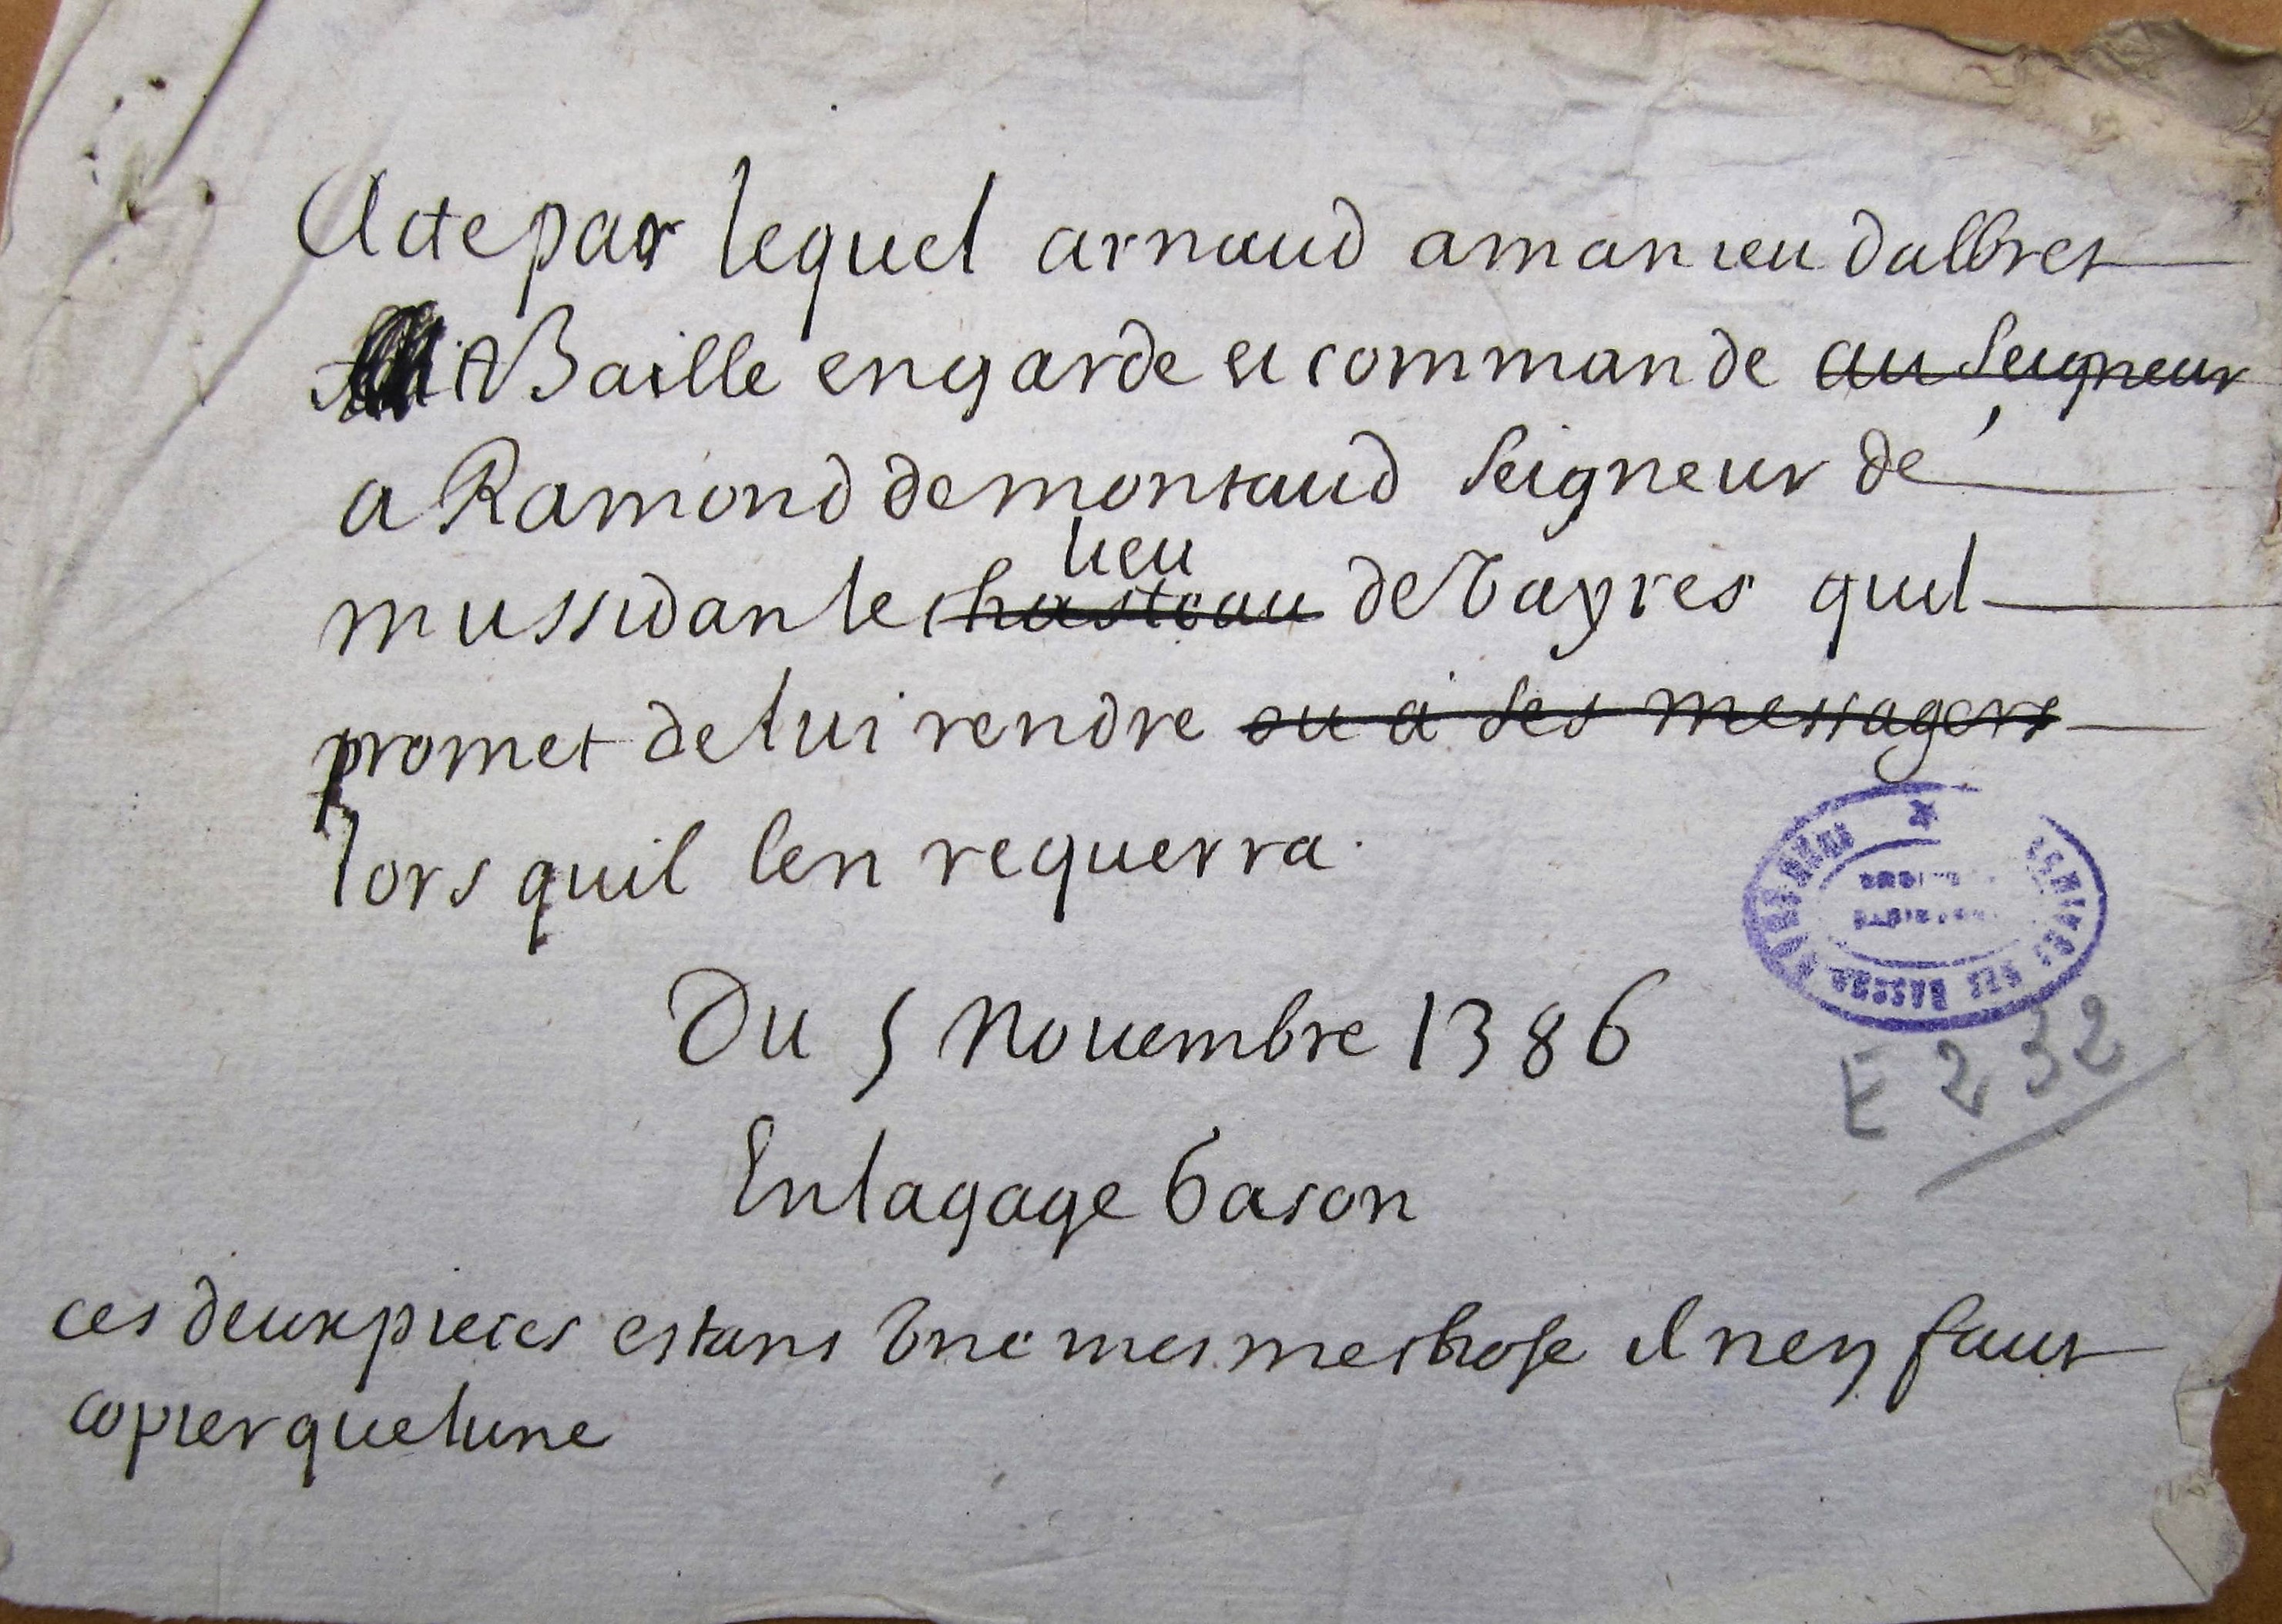 Acte par lequel arnaud amanieu dalbret
A Baille en garde et commande au seigneur
a Ramond de montaud seigneur de
lieu
mussidan le chasteau de Vayres quil
promet de lui rendre ou a ses messagers
lors quil len requerra.
Du 5 Novembre 1386
E 232
En lagage Gascon
ces deux pieces estans Une mesme chose il nen faut
copier que lune